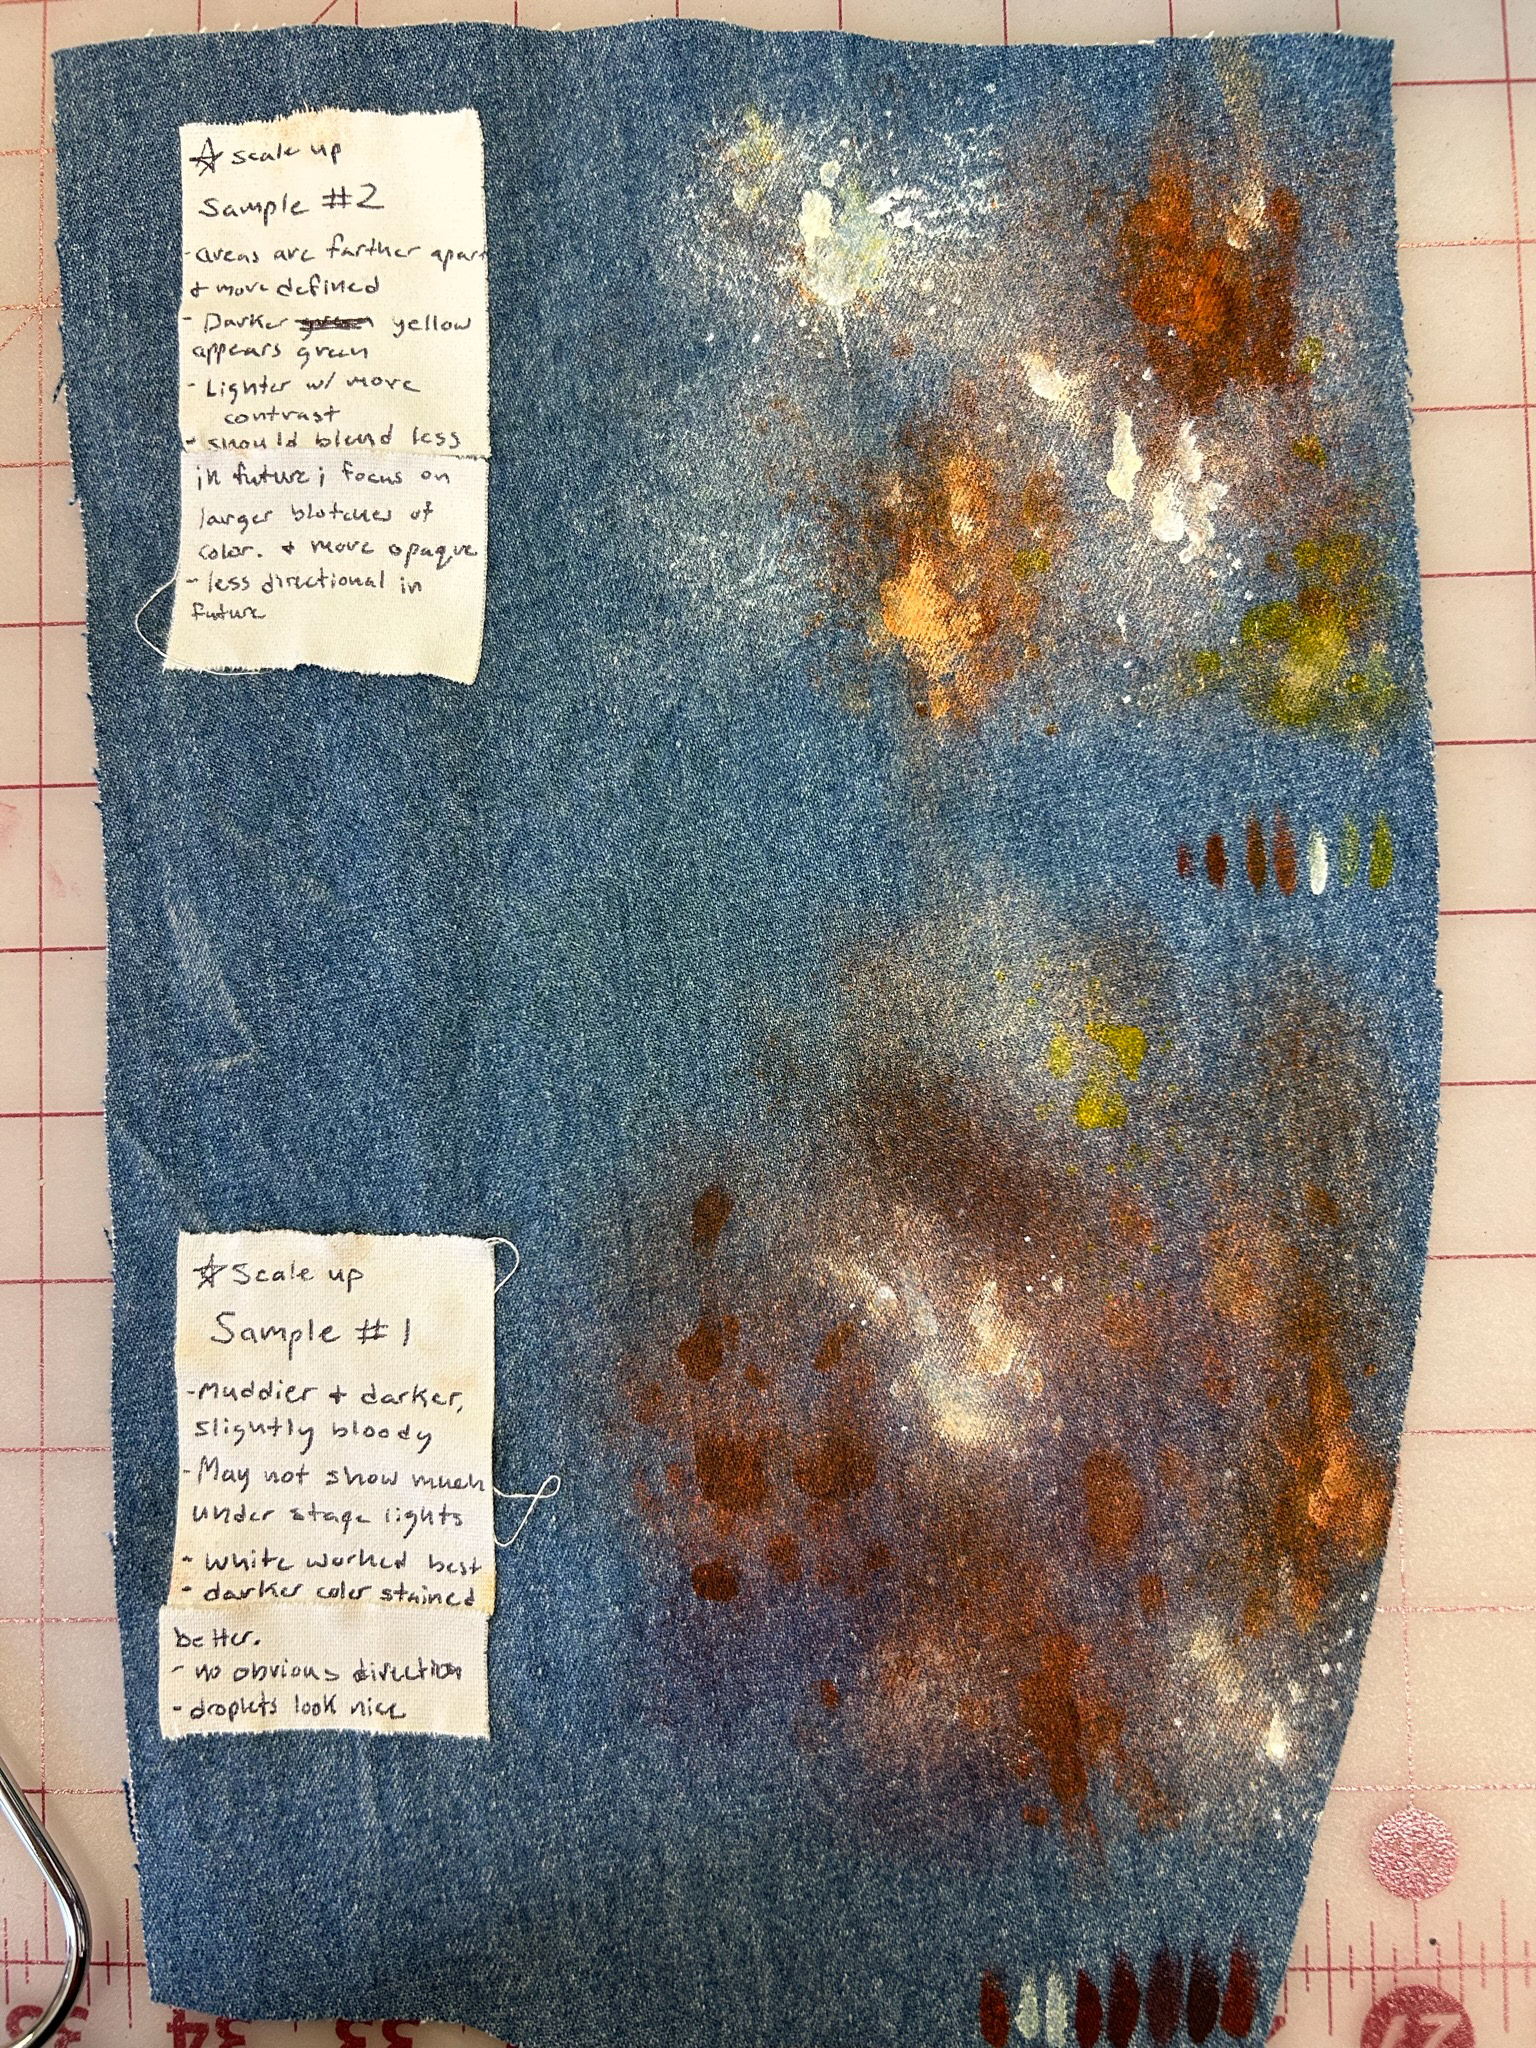 ☆ scale up
Sample #2
- areas are farther apart
+ more defined
- Darker yellow
appears green
- Lighter w/ more
contrast
- should blend less
in future; focus on
larger blotches of
color. + more opaque
- less directional in
future
☆ Scale up
Sample #1
- Muddier + darker,
slightly bloody
- May not show much
under stage lights
- white worked best
- darker color stained
better.
- no obvious direction
- droplets look nice
35 34 33 27